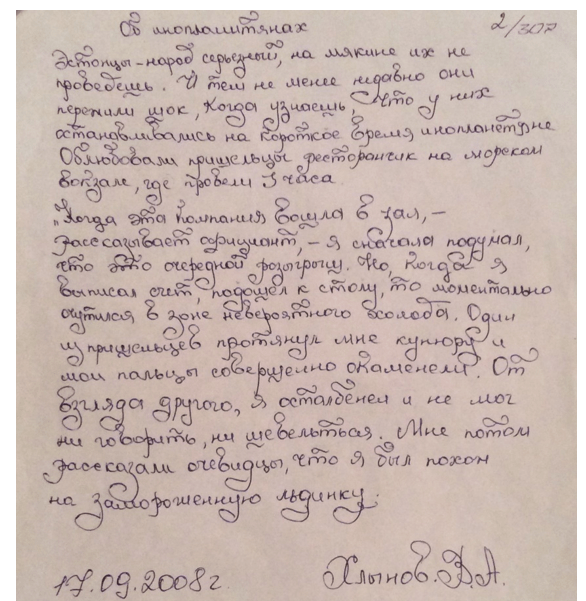 Об инопланитянах
2/ЗПР
Эстонцы - народ серьезный, на мякине их не
проведешь. И тем не менее недавно они
пережили шок, когда узнаешь, что у них
останавливались на короткое время инопланетяне
Облюбовали пришельцы ресторанчик на морском
вокзале, где провели 3 часа.
„Когда эта компания вошла в зал, –
рассказывает официант, – я сначала подумал,
что это очередной розыгрыш. Но, когда я
выписал счет, подошел к столу, то моментально
очутился в зоне невероятного холода. Один
из пришельцев протянул мне купюру и
мои пальцы совершенно окаменели. От
взгляда другого, я остолбенел и не мог
ни говорить, ни шевельться. Мне потом
рассказали очевидцы, что я был похож
на замороженную льдинку.
17.09.2008г. Хлынов.В.А.